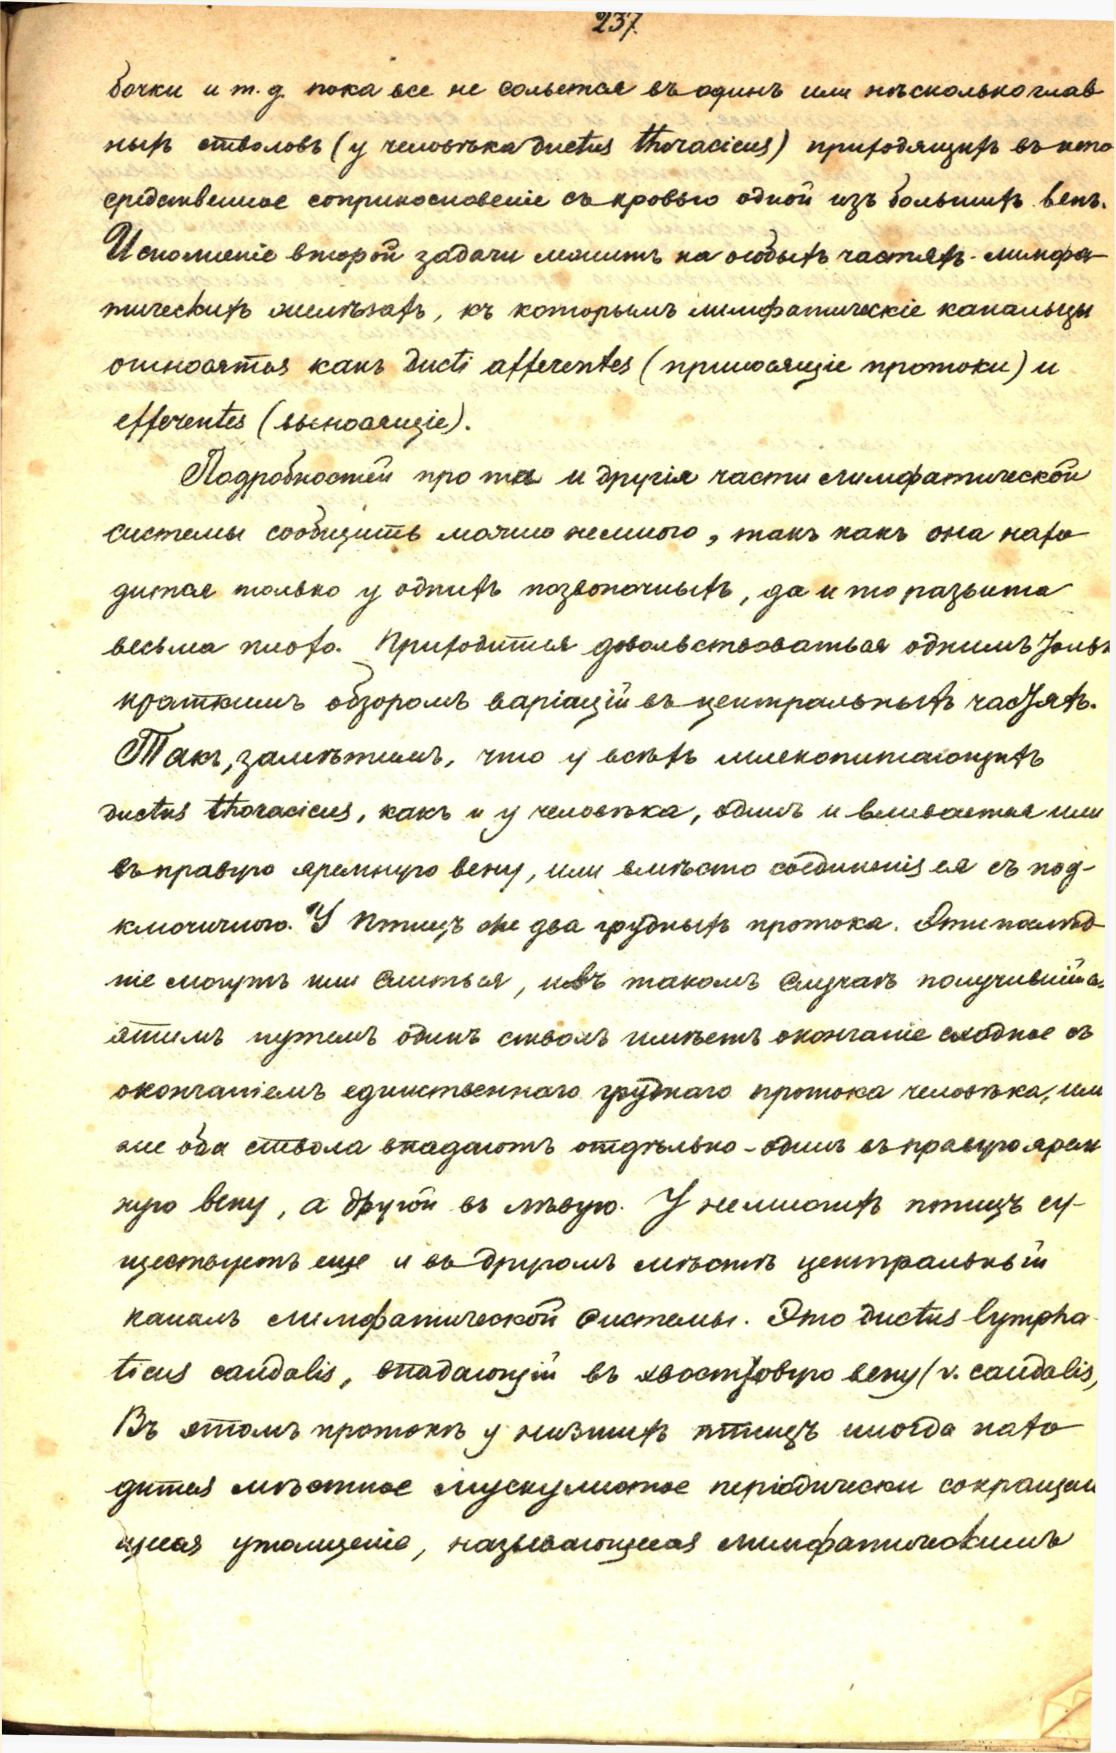 237.
бочки и т. д. пока все не сольется въ одинъ или нѣсколько глав
ныхъ стволовъ (у человѣка ductus thoracicus) приходящихъ въ непо
средственное соприкосновеніе съ кровью одной изъ большихъ венъ.
Исполненіе второй задачи лежитъ на особыхъ частяхъ - лимфа-
тическихъ желѣзахъ, къ которымъ лимфатическіе канальцы
относятся какъ ducti afferentes (приносящіе протоки) и
efferentes (выносящіе).
Подробностей про тѣ и другія части лимфатической
системы сообщить можно немного, такъ какъ она нахо
дится только у однихъ позвоночныхъ, да и то развита
весьма плохо. Приходится довольствоваться однимъ только
краткимъ обзоромъ варіацій въ центральныхъ частяхъ.
Такъ, замѣтимъ, что у всѣхъ млекопитающихъ
ductus thoracicus, какъ и у человѣка, одинъ и вливается или
въ правую яремную вену, или вмѣсто соединенія ея съ под-
ключичною. У птицъ же два грудныхъ протока. Эти послѣд
ніе могутъ или слиться, и въ такомъ случаѣ получившійся
этимъ путемъ одинъ стволъ имѣетъ окончаніе сходное съ
окончаніемъ единственнаго грудного протока человѣка, или
же оба ствола впадаютъ отдѣльно - одинъ въ правую ярем
ную вену, а другой въ лѣвую. У немногихъ птицъ су-
ществуетъ еще и въ другомъ мѣстѣ центральный
каналъ лимфатической системы. Это ductus lympha-
ticus caudalis, впадающій въ хвостовую вену (v. caudalis,
Въ этомъ протокѣ у низшихъ птицъ иногда нахо
дится мѣстное мускулистое періодически сокращаю
щееся утолщеніе, называющееся лимфатическимъ